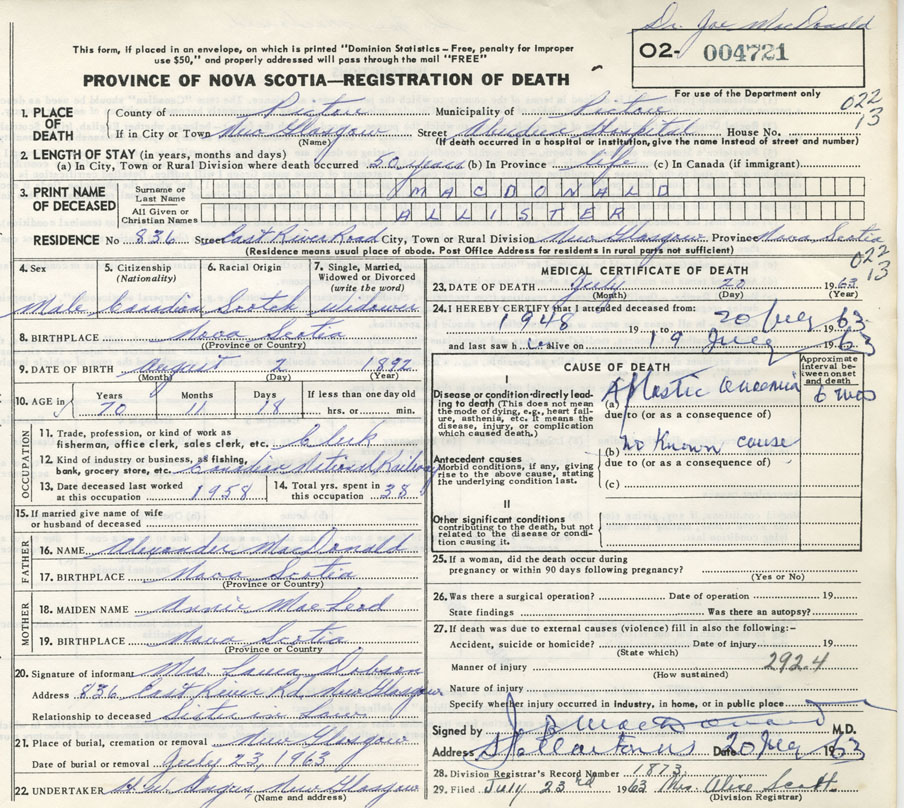 Dr. Joe MacDonald
This form, if placed in an envelope, on which is printed "Dominion Statistics – Free, penalty for improper
use $50," and properly addressed will pass through the mail "FREE"
O2- 004721
For use of the Department only
PROVINCE OF NOVA SCOTIA—REGISTRATION OF DEATH
022
13
1. PLACE OF DEATH
County of Pictou Municipality of Pictou
If in City or Town New Glasgow Street Aberdeen Hospital House No.
(Name) (If death occurred in a hospital or institution, give the name instead of street and number)
2. LENGTH OF STAY (in years, months and days)
(a) In City, Town or Rural Division where death occurred 50 years (b) In Province life (c) In Canada (if immigrant)
3. PRINT NAME OF DECEASED
Surname or Last Name MACDONALD
All Given or Christian Names ALLISTER
RESIDENCE No 836 Street East River Road City, Town or Rural Division New Glasgow Province Nova Scotia
(Residence means usual place of abode. Post Office Address for residents in rural parts not sufficient)
022
13
4. Sex Male
5. Citizenship (Nationality) Canadian
6. Racial Origin Scotch
7. Single, Married, Widowed or Divorced (write the word) Widower
8. BIRTHPLACE Nova Scotia
(Province or Country)
9. DATE OF BIRTH August 2 1892
(Month) (Day) (Year)
10. AGE in Years 70 Months 11 Days 18 If less than one day old hrs. or min.
OCCUPATION
11. Trade, profession, or kind of work as
fisherman, office clerk, sales clerk, etc. Clerk
12. Kind of industry or business, as fishing,
bank, grocery store, etc. Canadian National Railway
13. Date deceased last worked at this occupation 1958
14. Total yrs. spent in this occupation 38
15. If married give name of wife
or husband of deceased
FATHER
16. NAME Alexander MacDonald
17. BIRTHPLACE Nova Scotia
(Province or Country)
MOTHER
18. MAIDEN NAME Annie MacLeod
19. BIRTHPLACE Nova Scotia
(Province or Country)
20. Signature of informant Mrs. Laura Dobson
Address 836 East River Rd New Glasgow
Relationship to deceased Sister in Law
21. Place of burial, cremation or removal New Glasgow
Date of burial or removal July 23, 1963
22. UNDERTAKER H.W. Angus New Glasgow
(Name and address)
MEDICAL CERTIFICATE OF DEATH
23. DATE OF DEATH July 20 1963
(Month) (Day) (Year)
24. I HEREBY CERTIFY that I attended deceased from:
1948 19 , to 20 July 1963
and last saw h im alive on 19 July 1963
CAUSE OF DEATH
Approximate interval between onset and death
I
Disease or condition directly leading to death (This does not mean the mode of dying, e.g., heart failure, asthenia, etc. It means the disease, injury, or complication which caused death.)
(a) Aplastic anaemia 6 mos
due to (or as a consequence of)
Antecedent causes
Morbid conditions, if any, giving rise to the above cause, stating the underlying condition last.
(b) no known cause
due to (or as a consequence of)
(c)
II
Other significant conditions
contributing to the death, but not related to the disease or condition causing it.
25. If a woman, did the death occur during
pregnancy or within 90 days following pregnancy?
(Yes or No)
26. Was there a surgical operation? Date of operation 19
State findings Was there an autopsy?
27. If death was due to external causes (violence) fill in also the following:-
Accident, suicide or homicide? Date of injury 19
(State which)
Manner of injury 292.4
(How sustained)
Nature of injury
Specify whether injury occurred in industry, in home, or in public place
Signed by J B MacDonald M.D.
Address Stellarton NS Date 20 July 1963
28. Division Registrar's Record Number 1873
29. Filed July 23rd 1963 Mrs. Alice Scott
(Division Registrar)